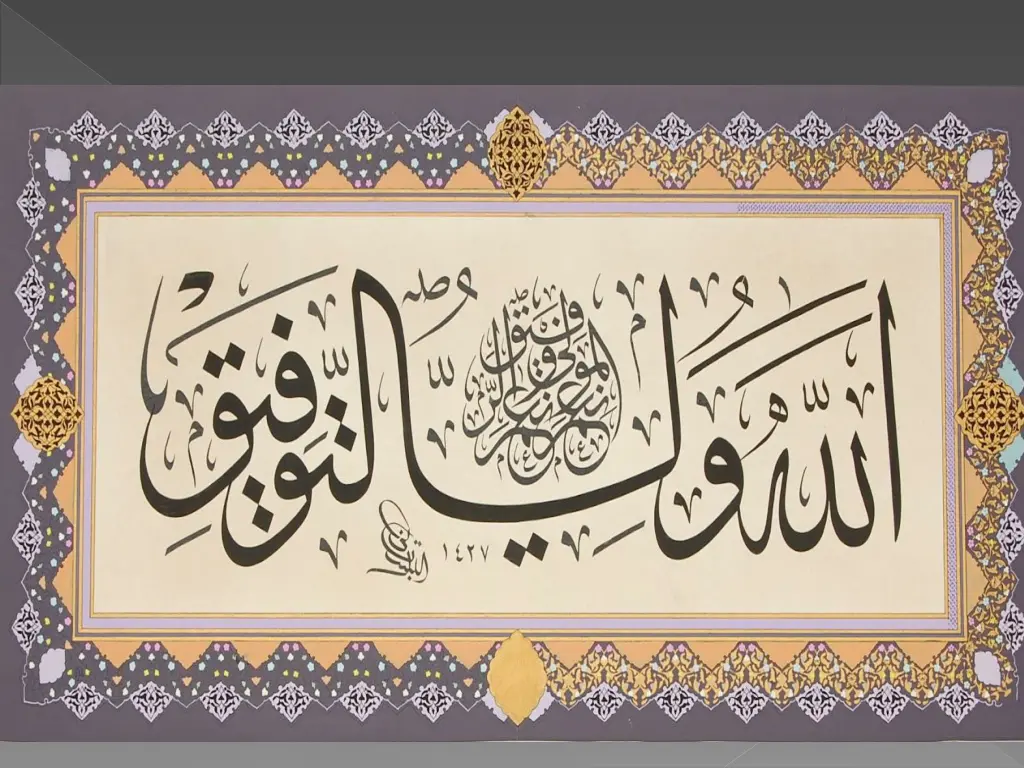 اللّٰهُ وَلِيُّ التَّوْفِيقِ
نعم المولى ونعم الرفيق
١٤٢٧